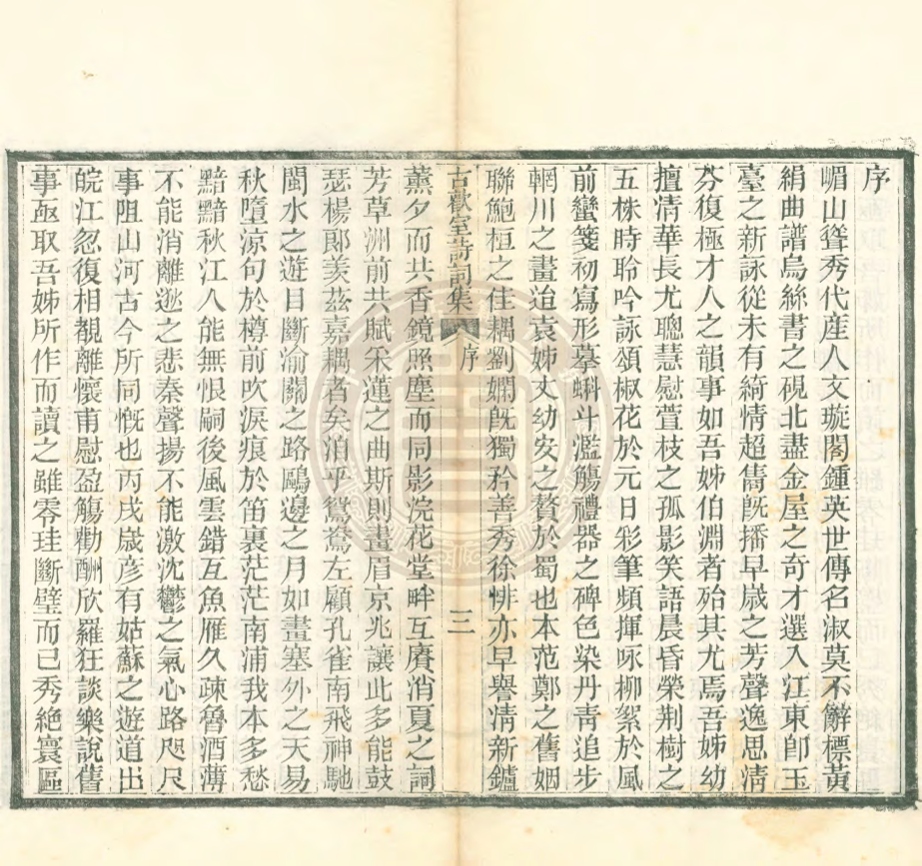 序
嵋山聳秀代産人文璇閣鍾英世傳名淑莫不觧標黃
絹曲譜烏絲書之硯北盡金屋之奇才選入江東卽玉
臺之新詠從未有綺情超雋旣播早歲之芳聲逸思淸
芬復極才人之韻事如吾姊伯淵者殆其尤焉吾姊幼
擅淸華長尤聰慧慰萱枝之孤影笑語晨昏榮荆樹之
五株時聆吟詠頌椒花於元日彩筆頻揮咏柳絮於風
前蠻箋初寫形摹蝌斗濫觴禮器之碑色染丹靑追步
輞川之畫迨袁姊丈幼安之贅於蜀也本范鄭之舊姻
聯鮑桓之佳耦劉嫻旣獨矜善秀徐悱亦早譽淸新鑪
古歡室詩詞集 序 二
薰夕而共香鏡照塵而同影浣花堂畔互賡消夏之詞
芳草洲前共賦采蓮之曲斯則畫眉京兆讓此多能鼓
瑟楊郞羨茲嘉耦者矣洎乎鴛鴦左顧孔雀南飛神馳
閩水之遊目斷渝關之路鷗邊之月如畫塞外之天易
秋墮涼句於樽前吹淚痕於笛裏茫茫南浦我本多愁
黯黯秋江人能無恨嗣後風雲錯互魚雁久疎魯酒薄
不能消離逖之悲秦聲揚不能激沈鬱之氣心路咫尺
事阻山河古今所同慨也丙戌歲彥有姑蘇之遊道出
皖江忽復相覩離懷甫慰盈觴勸酬欣羅狂談樂說舊
事亟取吾姊所作而讀之雖零珪斷璧而已秀絶寰區